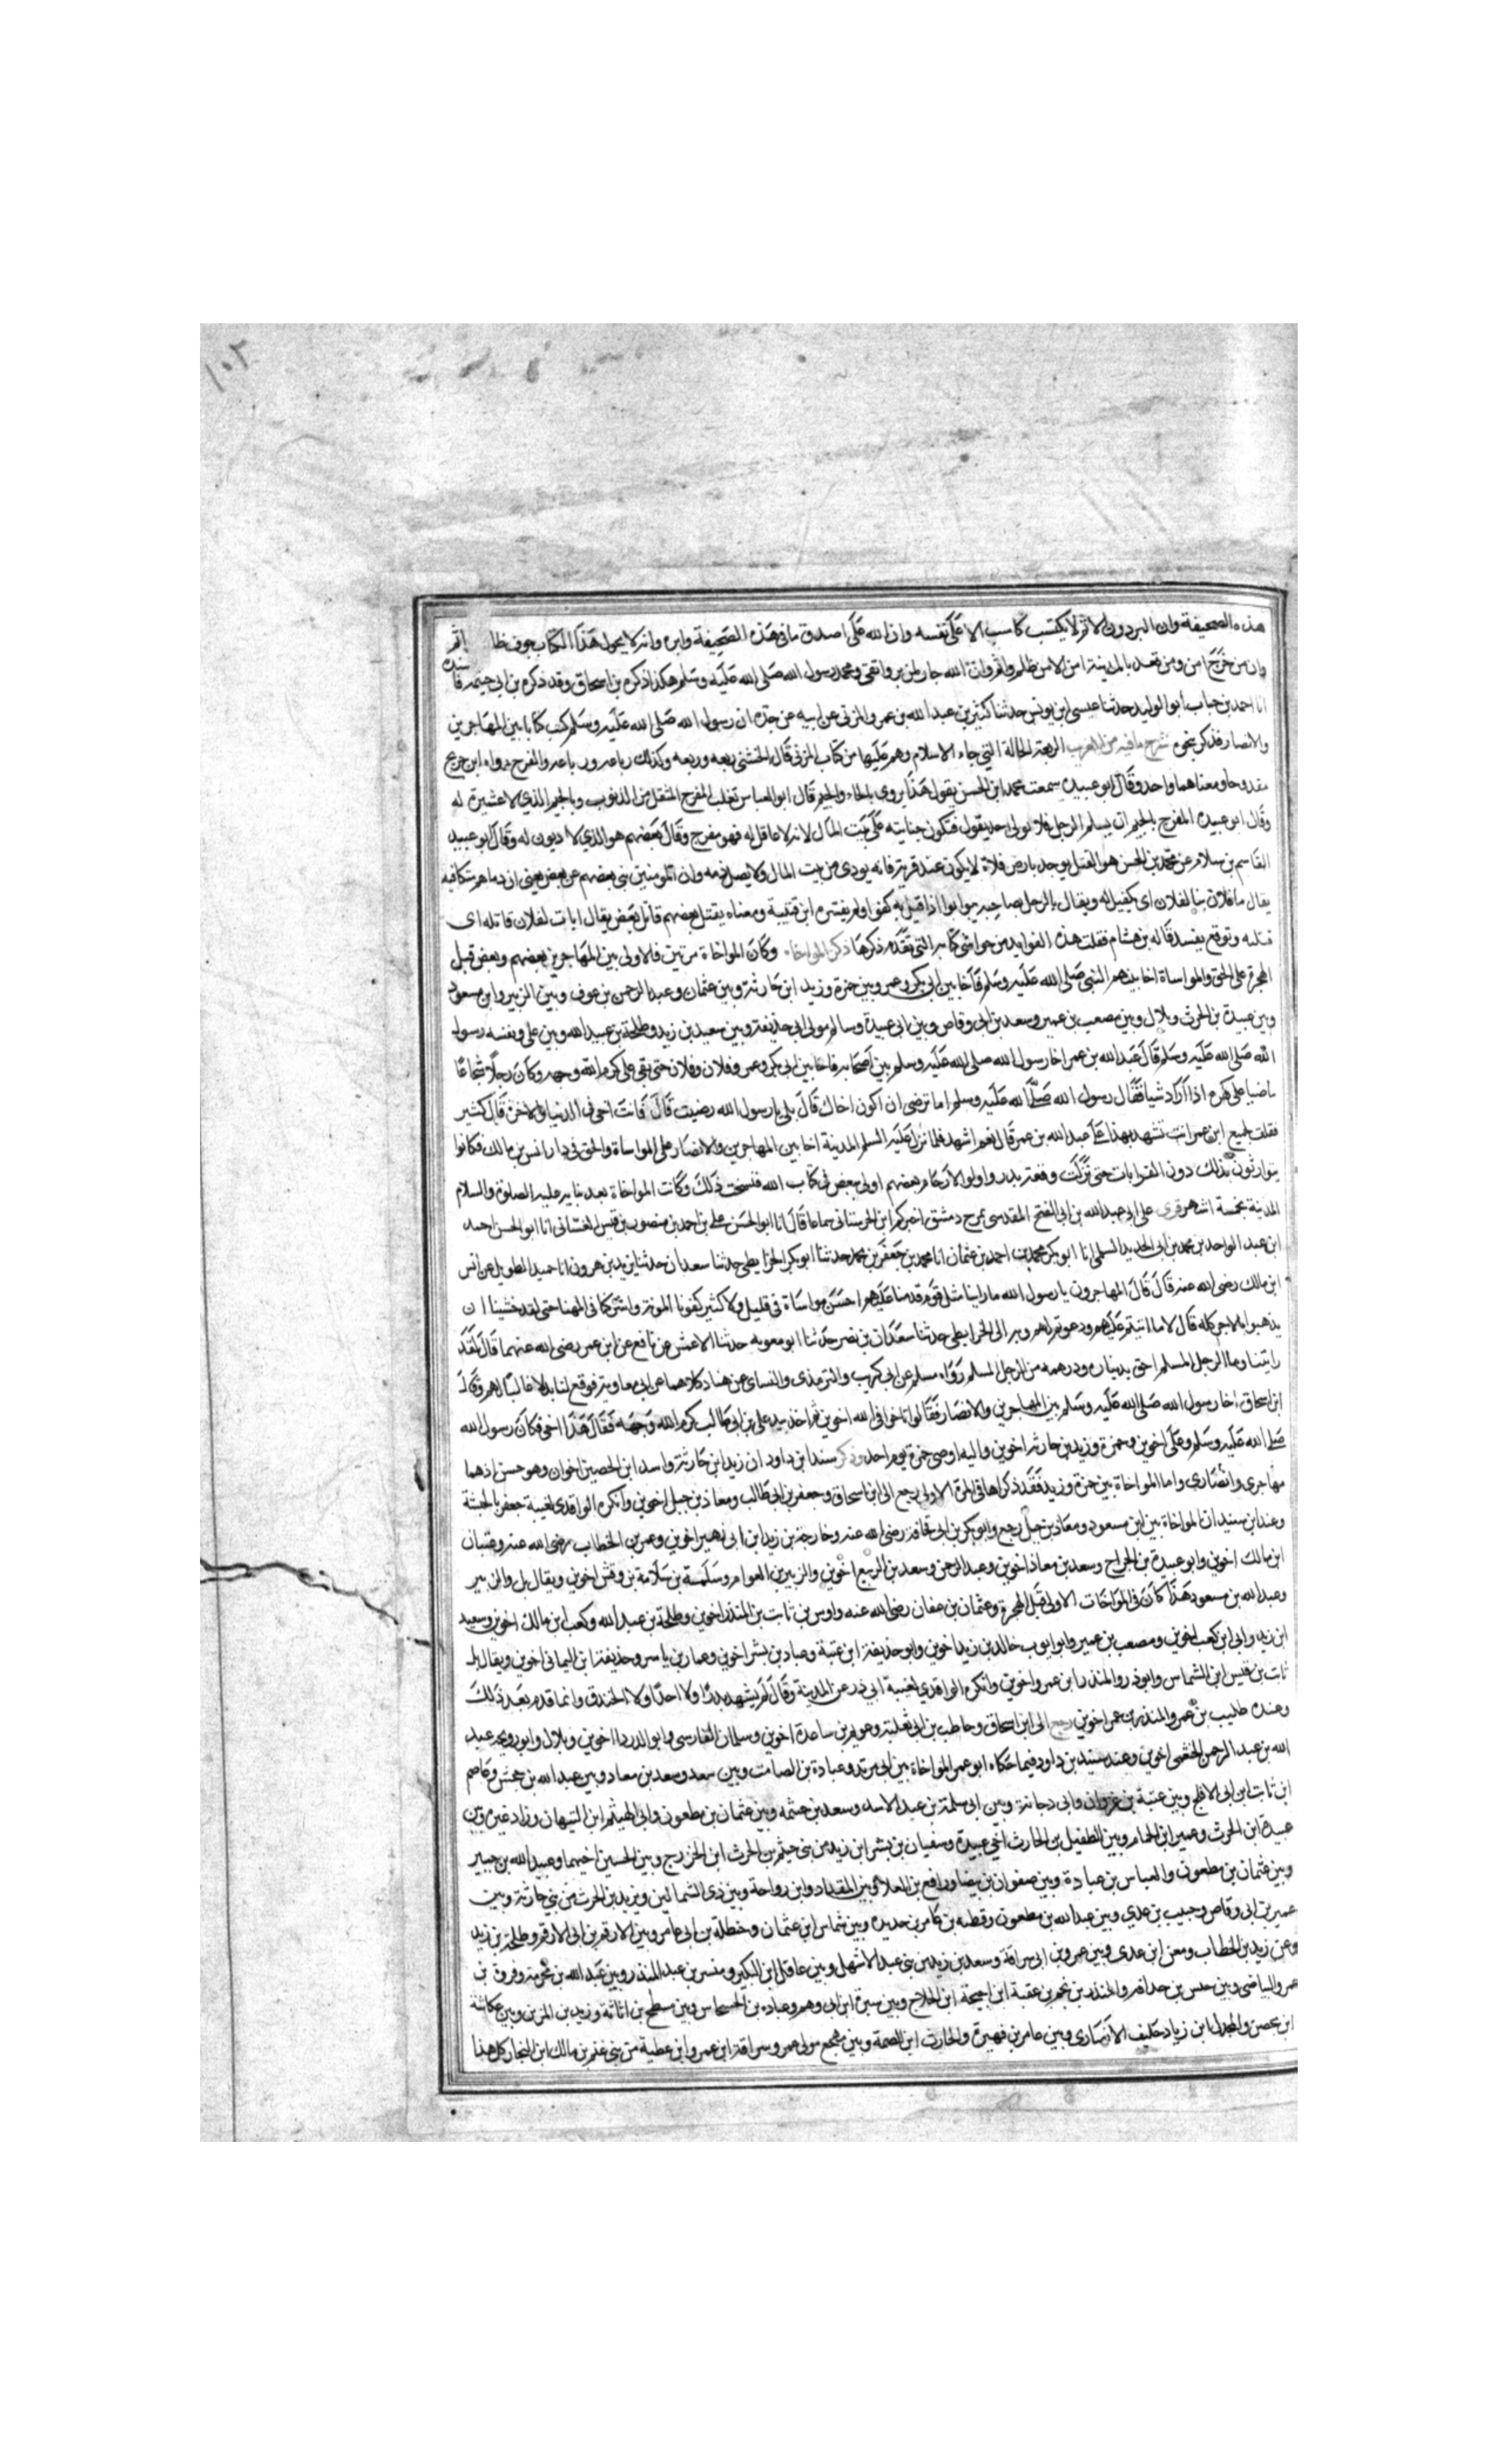 ١٠٢
هذه الصحيفة وان البر دون الاثم لا يكتسب كاسب الا على نفسه وان الله على اصدق ما فى هذه الصحيفة وابره وانه لا يحول هذا الكتاب دون ظالم او اثم
وان من خرج امن ومن قعد بالمدينة امن الا من ظلم واثم وان الله جار لمن بر واتقى ومحمد رسول الله صلى الله عليه وسلم هكذا ذكره بن اسحاق وقد ذكره بن ابي خيثمه فاسنده
انا احمد بن جناب أبو الوليد حدثنا عيسى ابن يونس حدثنا كثير بن عبد الله بن عمر والمزنى عن ابيه عن جده ان رسول الله صلى الله عليه وسلم كتب كتابا بين المهاجرين
والانصار فذكر بنحوه شرح ما فيه من الغريب الربعة الحالة التي جاء الاسلام وهم عليها من كتاب المزنى قال الخشنى ربعه وربعه وكذلك رباعه ورباعه والمفرح رواه ابن جريج
مفدوحا ومعناهما واحد وقال ابو عبيده سمعت محمد ابن الحسن يقول هذا يروى بالحاء والجيم قال ابو العباس ثعلب المفرح المثقل من الديون وبالجيم الذي لا عشيرة له
وقال ابو عبيده المفرج بالجيم ان يسلم الرجل فلا يولى احد يقول فتكون جنايته على بيت المال لانه لا عاقل له فهو مفرج وقال بعضهم هو الذي لا ديون له وقال ابو عبيد
القاسم بن سلام عن محمد بن الحسن هو القتيل يوجد بارض فلاة لا يكون عند قرية فانه يودى من بيت المال ولا يصل دمه وان المومنين يبى بعضهم عن بعض يعنى ان دماهم متكافيه
يقال ما فلان ببا لفلان اى بكفيل له ويقال بالرجل بصاحبه يبوا بوا اذا قتل به كفوا ولم يفسره ابن قتيبة ومعناه يقتل بعضهم قاتل بعض يقال ابات لفلان قاتله اى
قتلته وتوتغ يفسد قاله بن هشام فقلت هذه الفوايد من حواشى كتابه التى تقدم ذكرها ذكر المواخاه وكان المواخاة مرتين فالاولى بين المهاجرين بعضهم وبعض قبل
الهجرة على الحق والمواساة اخا بينهم النبى صلى الله عليه وسلم فآخا بين ابى بكر وعمر وبين حمزة وزيد ابن حارثة وبين عثمان وعبد الرحمن بن عوف وبين الزبير وابن مسعود
وبين عبيدة بن الحرث وبلال وبين مصعب بن عمير وسعد بن ابى وقاص وبين ابى عبيدة وسالم مولى ابى حذيفة وبين سعيد بن زيد وطلحة بن عبيد الله وبين على ونفسه رسول
الله صلى الله عليه وسلم قال عبد الله بن عمر اخا رسول الله صلى الله عليه وسلم بين اصحابه فاخا بين ابى بكر وعمر وفلان وفلان حتى بقى على كرم الله وجهه وكان رجلا شجاعا
ماضيا على كره اذا اراد شيا فقال رسول الله صلى الله عليه وسلم اما ترضى ان اكون اخاك قال بلى يا رسول الله رضيت قال فانت اخى فى الدنيا والاخرة قال كثير
فقلت لجميع ابن عمير انت تشهد بهذا على عبد الله بن عمر قال نعم اشهد فلما نزل عليه السلم المدينة اخا بين المهاجرين والانصار على المواساة والحق فى دار انس بن مالك فكانوا
يتوارثون بذلك دون القرابات حتى نزلت وقعة بدر واولو الارحام بعضهم اولى ببعض فى كتاب الله فنسخت ذلك وكانت المواخاة بعد بنايه عليه الصلوة والسلام
المدينة بخمسة اشهر قرى على ابى عبد الله بن ابى الفتح المقدسى بمرج دمشق اخبركم ابن الحرستانى سماعا قال انا ابو الحسن على بن احمد بن منصور بن قبيس الغسانى انا ابو الحسن احمد
ابن عبد الواحد بن محمد بن ابى الحديد السلمى انا ابو بكر محمد بن احمد بن عثمان انا محمد بن جعفر بن محمد حدثنا ابو بكر الخرايطى حدثنا سعدان حدثنا يزيد بن هرون انا حميد الطويل عن انس
ابن مالك رضى الله عنه قال قال المهاجرون يا رسول الله ما راينا مثل قوم قدمنا عليهم احسن مواساة فى قليل ولا كثير كفونا المونة واشركنا فى المهنا حتى لقد خشينا ان
يذهبوا بالاجر كله قال لا ما اثنيتم عليهم ودعوتم لهم وبه الى الخرايطى حدثنا سعدان بن نصر حدثنا ابو معويه حدثنا الاعمش عن نافع عن ابن عمر رضى الله عنهما قال لقد
رايتنا وما الرجل المسلم احق بديناره ودرهمه من الرجل المسلم رواه مسلم عن ابى كريب والترمذى والنساى عن هناد كلاهما عن ابى معاوية فوقع لنا بدلا عاليا لهم وقال
ابن اسحاق اخا رسول الله صلى الله عليه وسلم بين المهاجرين والانصار فقال تواخوا فى الله اخوين ثم اخذ بيد على بن ابى طالب كرم الله وجهه فقال هذا اخى فكان رسول الله
صلى الله عليه وسلم وعلى اخوين وحمزة وزيد بن حارثة اخوين واليه اوصى حمزة يوم احد وذكر سنيد ابن داود ان زيد ابن حارثة واسيد ابن الحضير اخوان وهو حسن اذهما
مهاجرى وانصارى واما المواخاة بين حمزة وزيد فقد ذكراها فى المرة الاولى رجع الى ابن اسحاق وجعفر بن ابى طالب ومعاذ بن جبل اخوين وانكره الواقدى لغيبة جعفر بالحبشة
وعند ابن سنيد ان المواخاة بين ابن مسعود ومعاذ بن جبل رجع وابو بكر بن ابى قحافة رضى الله عنه وخارجة بن زيد ابن ابى زهير اخوين وعمر بن الخطاب رضى الله عنه وعتبان
ابن مالك اخوين وابو عبيدة بن الجراح وسعد بن معاذ اخوين وعبد الرحمن وسعد بن الربيع اخوين والزبير بن العوام وسلمة بن سلامة بن وقش اخوين ويقال بل والزبير
وعبد الله بن مسعود هذا كان فى المواخات الاولى قبل الهجرة وعثمان بن عفان رضى الله عنه واوس بن ثابت بن المنذر اخوين وطلحة بن عبيد الله وكعب ابن مالك اخوين وسعيد
ابن زيد وابى ابن كعب اخوين ومصعب بن عمير وابو ايوب خالد بن زيد اخوين وابو حذيفة ابن عتبة وعباد بن بشر اخوين وعمار بن ياسر وحذيفة ابن اليمانى اخوين ويقال بل
ثابت بن قيس ابن الشماس وابو ذر والمنذر ابن عمرو اخوين وانكره الواقدى لغيبة ابى ذر عن المدينة وقال لم يشهد بدرا ولا احدا ولا الخندق وانما قدم بعد ذلك
وعنده طليب بن عمر والمنذر بن عمر اخوين رجع الى ابن اسحاق وحاطب بن ابى بلتعة وعويم بن ساعدة اخوين وسلمان الفارسى وابو الدردا اخوين وبلال وابو رويحه عبد
الله بن عبد الرحمن الخثعمى اخوين وعند سنيد بن داود فيما حكاه ابو عمر المواخاة بين ابى مرثد وعبادة بن الصامت وبين سعد وسعد بن معاد وبين عبد الله بن جحش وعاصم
ابن ثابت ابن ابى الاقلح وبين عتبة بن غزوان وابى دجانة وبين ابى سلمة بن عبد الاسد وسعد بن خيثمه وبين عثمان بن مظعون وابى الهيثم ابن التيهان وزاد غيره بين
عبيدة ابن الحرث وعمير ابن الحمام وبين الطفيل بن الحارث اخي عبيدة وسفيان بن بشر ابن زيد من بنى جشم بن الحرث ابن الخزرج وبين الحسين اخيهما وعبد الله بن جبير
وبين عثمان بن مظعون والعباس بن عبادة وبين صفوان بن بيضا ورافع بن المعلا وبين المقداد وابن رواحة وبين ذى الشمالين ويزيد بن الحرث من بنى حارثة وبين
عمير بن ابى وقاص وخبيب بن عدى وبين عبد الله بن مظعون وقطبه بن عامر بن حديده وبين شماس ابن عثمان وحنظلة بن ابى عامر وبين الارقم بن ابى الارقم وطلحة بن زيد
وعن زيد بن الخطاب ومعن ابن عدى وبين عمرو بن ابى سراقة وسعد بن زيد بن بنى عبد الاشهل وبين عاقل ابن البكير ومبشر بن عبد المنذر وبين عبد الله بن مخرمة وفروة بن
عمر والبياضى وبين خنيس بن حذافة والمنذر بن محمد بن عقبة ابن احيحة ابن الجلاح وبين سبرة ابن ابى رهم وعباده بن الخشخاش وبين مسطح بن اثاثة وزيد بن المزين وبين عكاشة
ابن محصن والمجذر ابن زياد حليف الانصارى وبين عامر بن فهيرة والحارث ابن الصمة وبين مهجع مولى عمر وسراقة ابن عمرو ابن عطية من بنى غنم بن مالك ابن النجار كل هذا